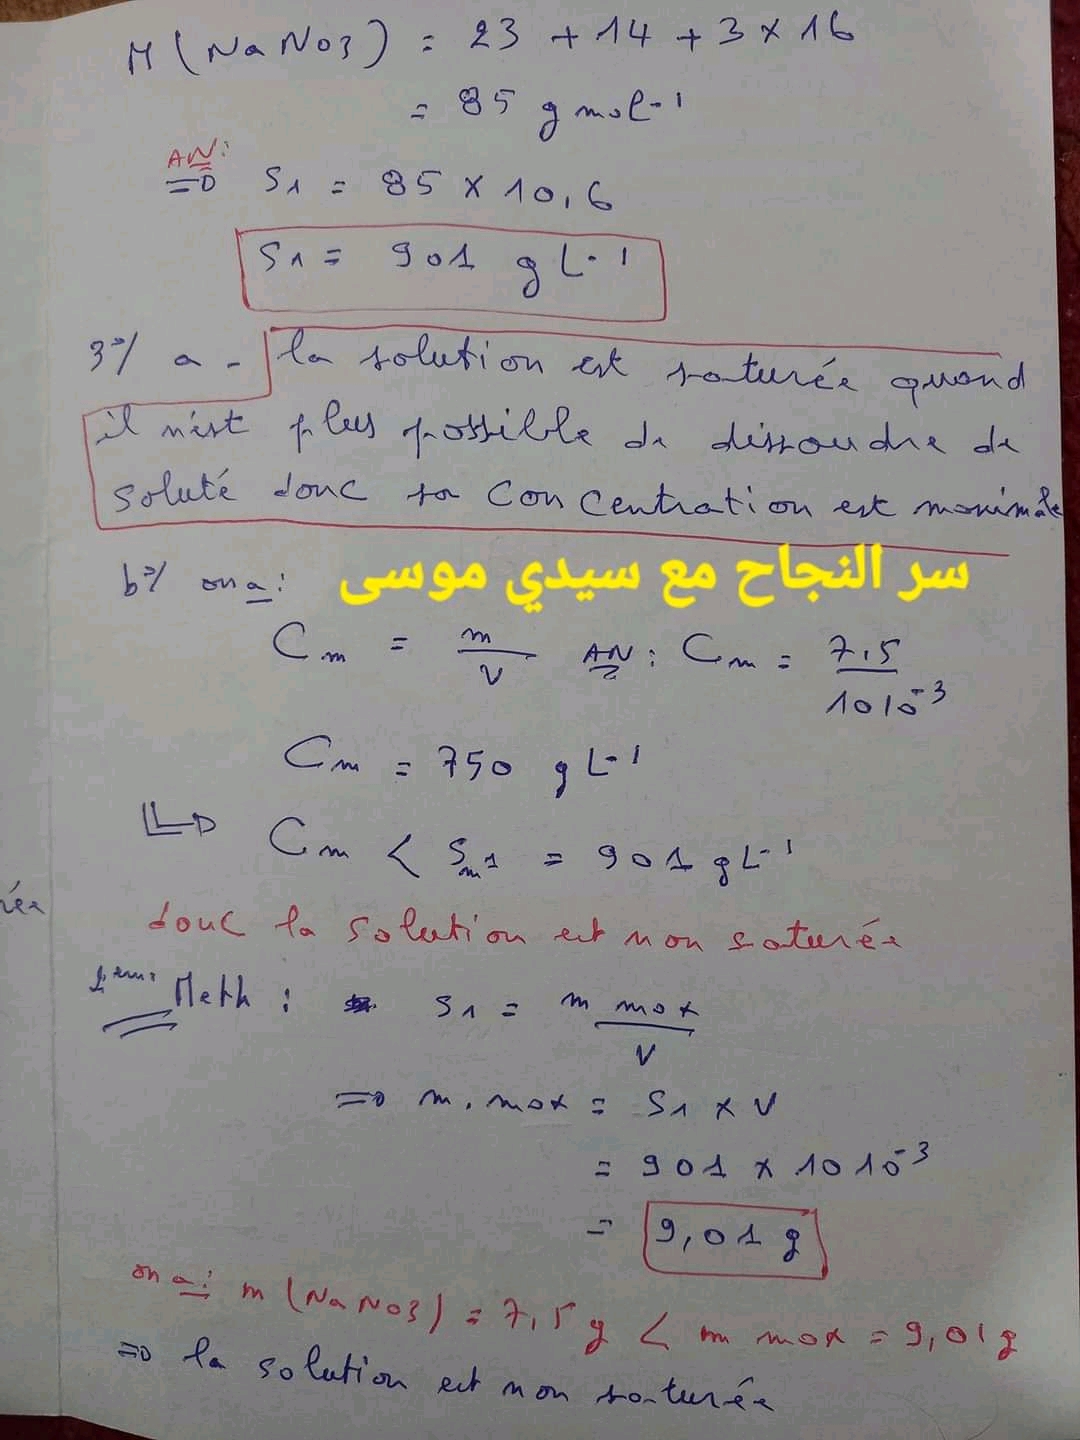 M(NaNO3) = 23 + 14 + 3 × 16
= 85 g mol-1
AN:
=> S1 = 85 × 10,6
S1 = 901 g L-1
3°/ a - la solution est saturée quand
il n'est plus possible de dissoudre de
soluté donc sa concentration est maximale
سر النجاح مع سيدي موسى
b°/ on a:
Cm = m/V AN: Cm = 7,5/10 10-3
Cm = 750 g L-1
=> Cm < Sm1 = 901 g L-1
donc la solution est non saturée
2ème Meth: S1 = m max/V
=> m. max = S1 × V
= 901 × 10 10-3
= 9,01 g
on a: m(NaNO3) = 7,5 g < m max = 9,01 g
=> la solution est non saturée